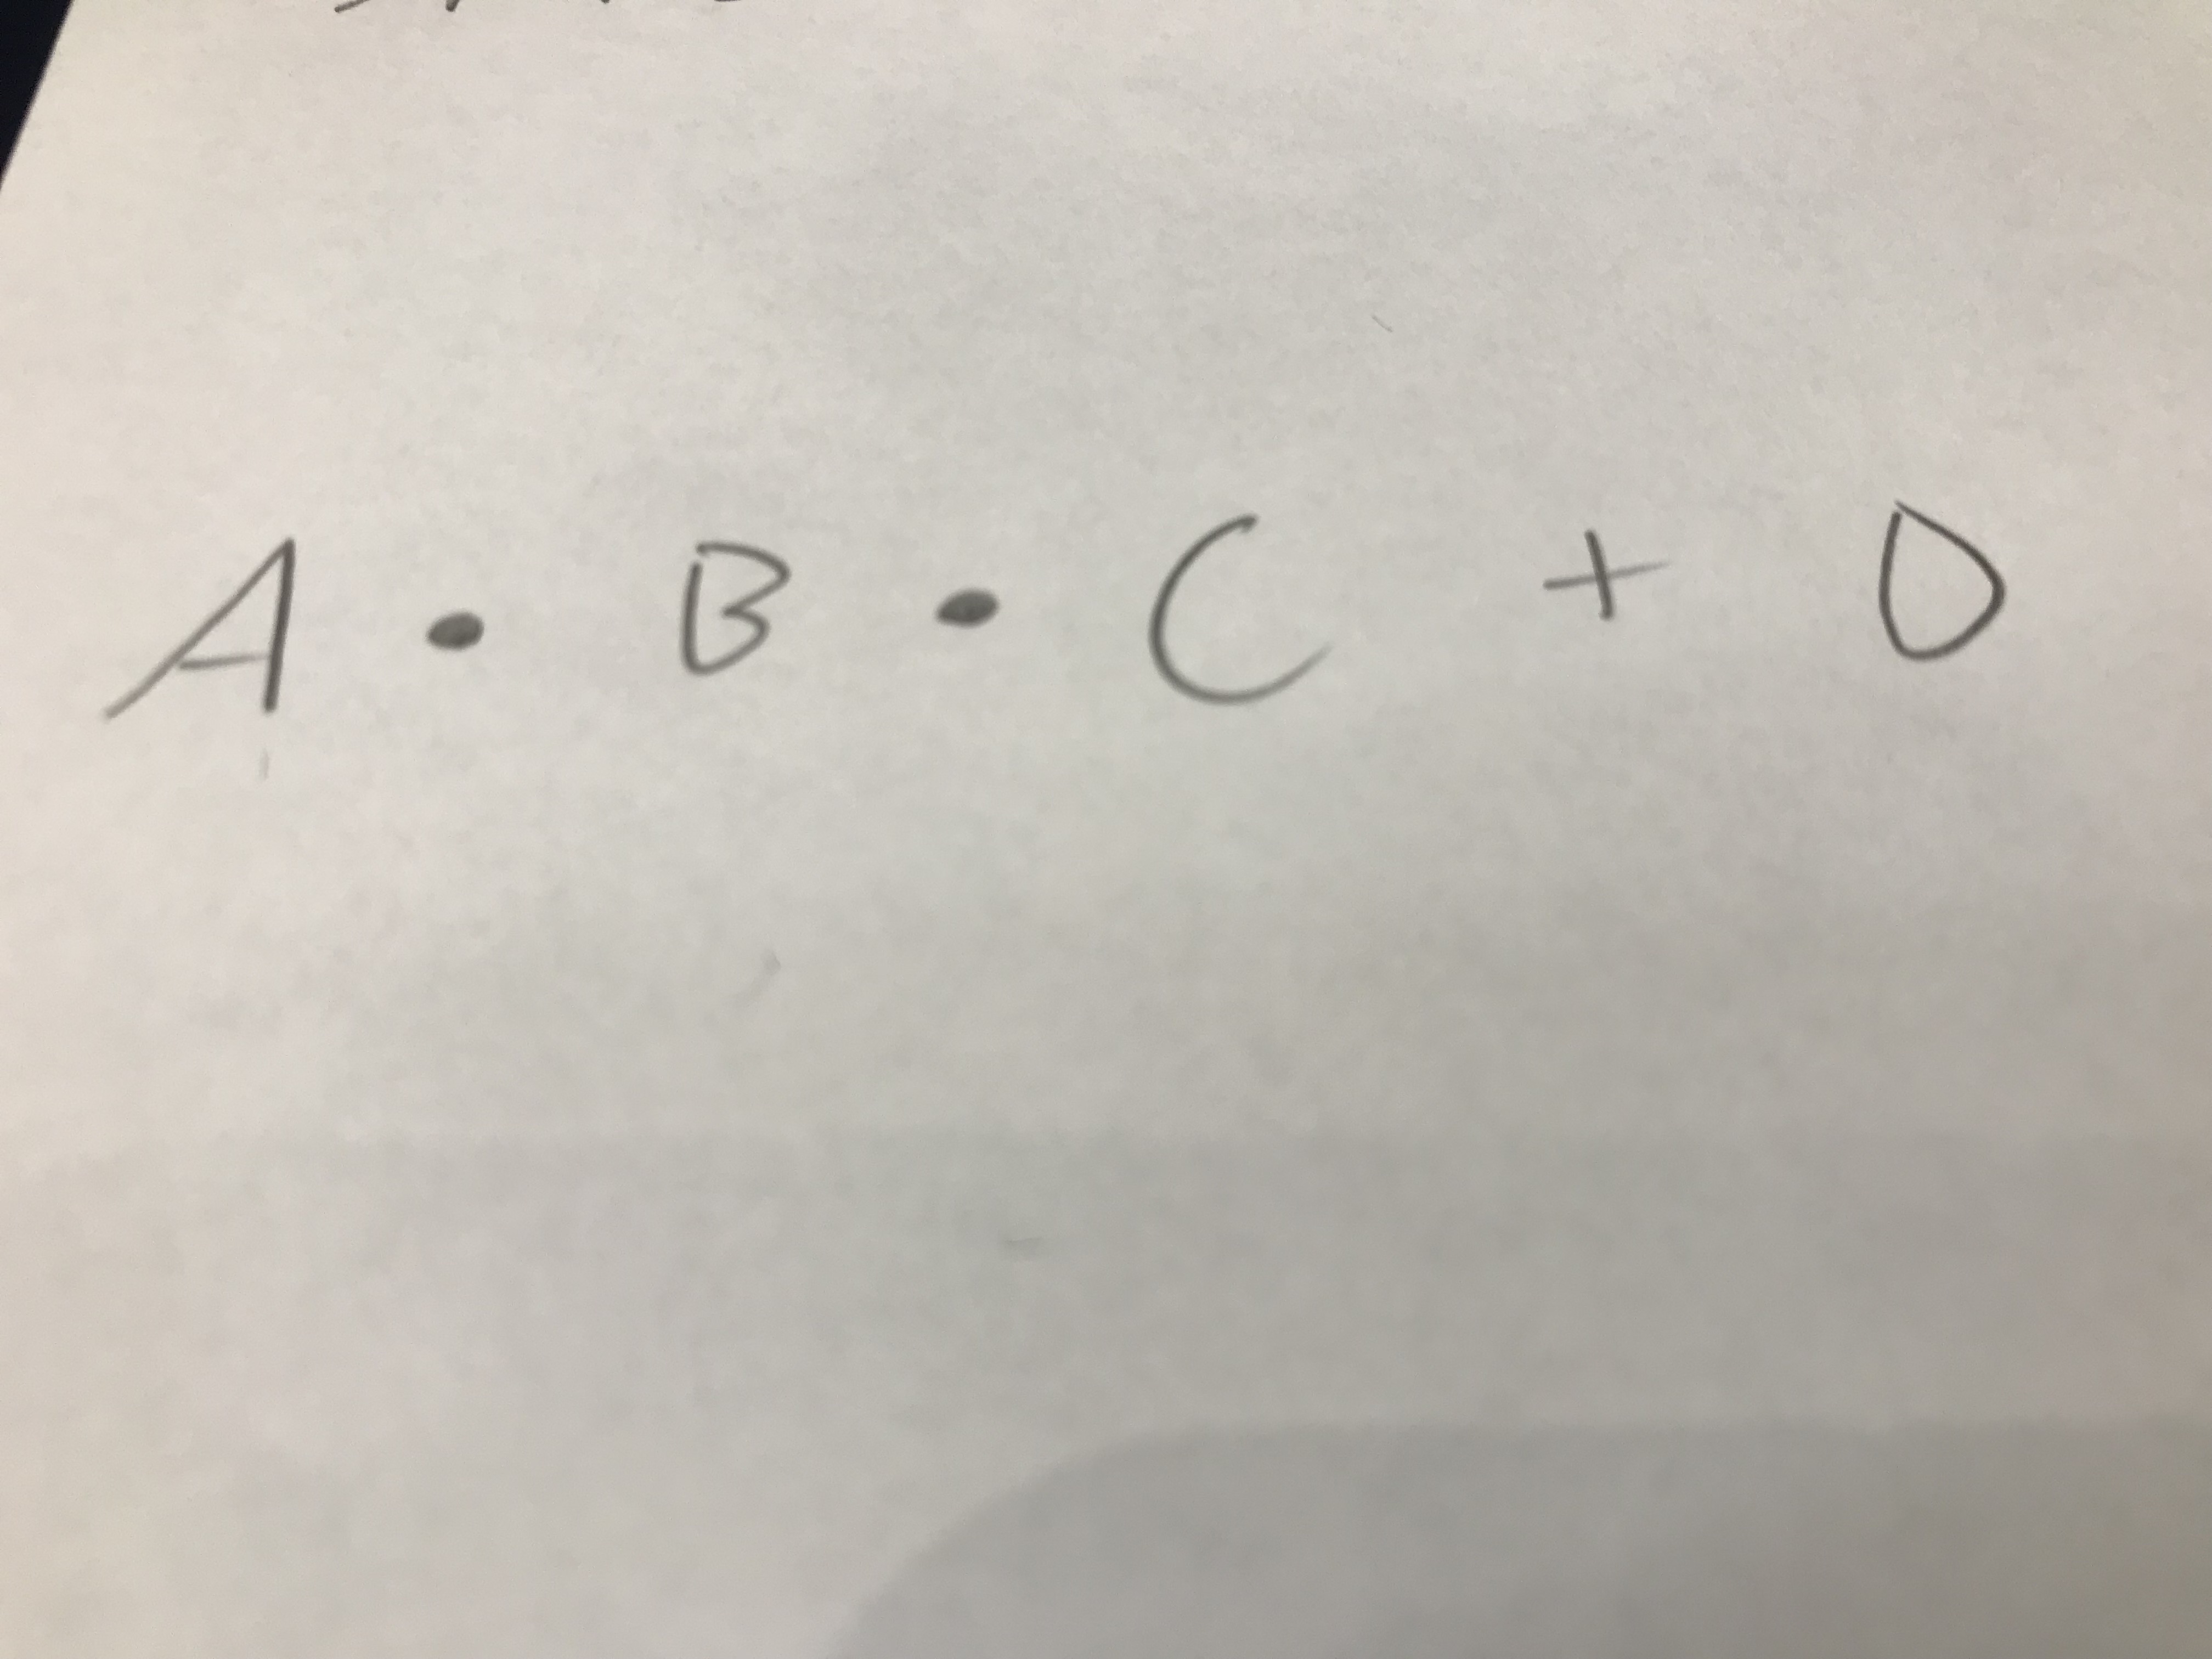 A • B • C + D